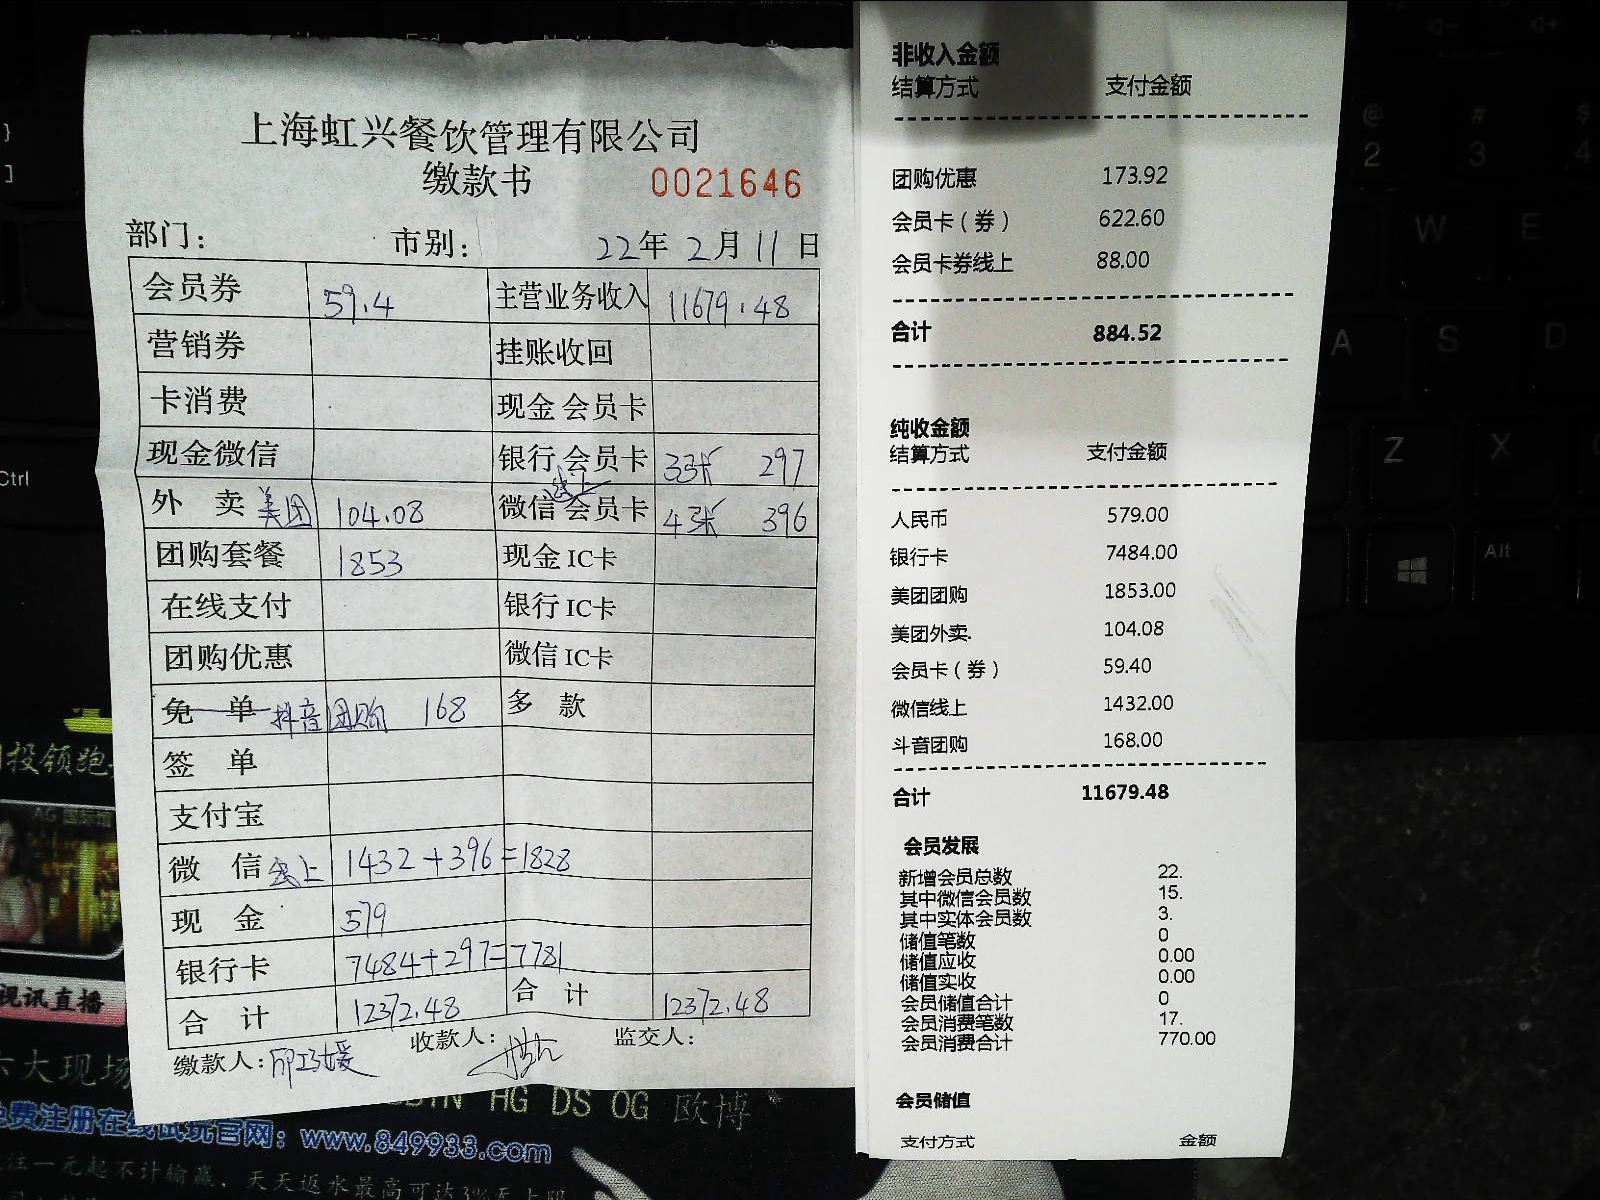 上海虹兴餐饮管理有限公司
缴款书 0021646
部门: 市别: 22年 2月 11日
会员券 59.4 主营业务收入 11679.48
营销券 挂账收回
卡消费 现金会员卡
现金微信 银行会员卡 33张 297
外 卖 美团 104.08 微信线上会员卡 4张 396
团购套餐 1853 现金IC卡
在线支付 银行IC卡
团购优惠 微信IC卡
免 单 抖音团购 168 多 款
签 单
支付宝
微 信 线上 1432+396=1828
现 金 579
银行卡 7484+297=7781
合 计 12372.48 合 计 12372.48
缴款人: 收款人: 监交人:
非收入金额
结算方式 支付金额
团购优惠 173.92
会员卡(券) 622.60
会员卡券线上 88.00
合计 884.52
纯收金额
结算方式 支付金额
人民币 579.00
银行卡 7484.00
美团团购 1853.00
美团外卖. 104.08
会员卡(券) 59.40
微信线上 1432.00
斗音团购 168.00
合计 11679.48
会员发展
新增会员总数 22.
其中微信会员数 15.
其中实体会员数 3.
储值笔数 0
储值应收 0.00
储值实收 0.00
会员储值合计 0
会员消费笔数 17.
会员消费合计 770.00
会员储值
支付方式 金额
}
]
Ctrl
End
@
2
#
3
$
4
W
E
A
S
D
Z
X
Alt
投领跑
视讯直播
六大现场
HG DS OG 欧博
免费注册在线试玩官网: www.849933.com
注一元起不计输赢, 天天返水最高可达3%无上限